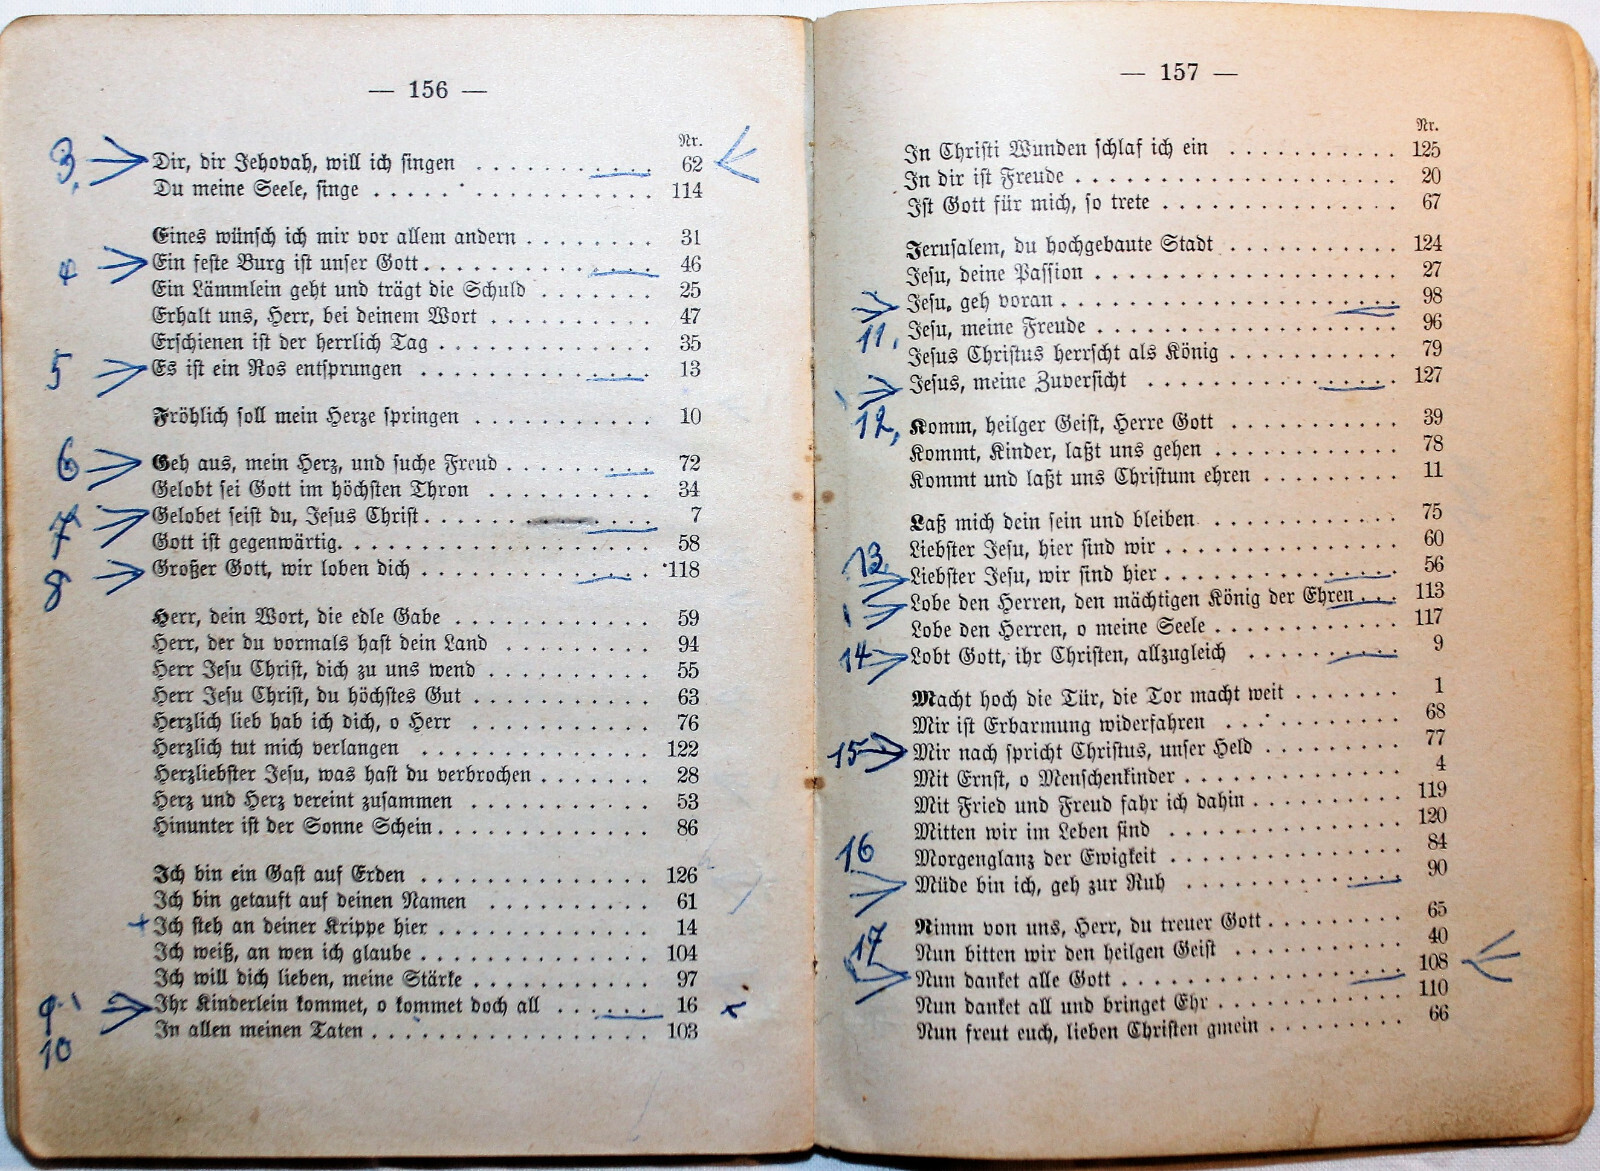 — 156 —
Nr.
3. Dir, dir Jehovah, will ich singen . . . . . . . . . . 62
Du meine Seele, singe . . . . . . . . . . . . . . . 114
Eines wünsch ich mir vor allem andern . . . . . . . . 31
4 Ein feste Burg ist unser Gott . . . . . . . . . . . . 46
Ein Lämmlein geht und trägt die Schuld . . . . . . . 25
Erhalt uns, Herr, bei deinem Wort . . . . . . . . . . 47
Erschienen ist der herrlich Tag . . . . . . . . . . . . 35
5 Es ist ein Ros entsprungen . . . . . . . . . . . . . 13
Fröhlich soll mein Herze springen . . . . . . . . . . . 10
6 Geh aus, mein Herz, und suche Freud . . . . . . . . . 72
Gelobt sei Gott im höchsten Thron . . . . . . . . . . 34
7 Gelobet seist du, Jesus Christ . . . . . . . . . . . . 7
Gott ist gegenwärtig . . . . . . . . . . . . . . . . . 58
8 Großer Gott, wir loben dich . . . . . . . . . . . . . 118
Herr, dein Wort, die edle Gabe . . . . . . . . . . . . 59
Herr, der du vormals hast dein Land . . . . . . . . . 94
Herr Jesu Christ, dich zu uns wend . . . . . . . . . . 55
Herr Jesu Christ, du höchstes Gut . . . . . . . . . . . 63
Herzlich lieb hab ich dich, o Herr . . . . . . . . . . . 76
Herzlich tut mich verlangen . . . . . . . . . . . . . 122
Herzliebster Jesu, was hast du verbrochen . . . . . . . 28
Herz und Herz vereint zusammen . . . . . . . . . . . 53
Hinunter ist der Sonne Schein . . . . . . . . . . . . . 86
Ich bin ein Gast auf Erden . . . . . . . . . . . . . 126
Ich bin getauft auf deinen Namen . . . . . . . . . . 61
+ Ich steh an deiner Krippe hier . . . . . . . . . . . . 14
Ich weiß, an wen ich glaube . . . . . . . . . . . . . 104
Ich will dich lieben, meine Stärke . . . . . . . . . . . 97
9 Ihr Kinderlein kommet, o kommet doch all . . . . . . 16
10 In allen meinen Taten . . . . . . . . . . . . . . . . 103
— 157 —
Nr.
In Christi Wunden schlaf ich ein . . . . . . . . . . 125
In dir ist Freude . . . . . . . . . . . . . . . . . . 20
Ist Gott für mich, so trete . . . . . . . . . . . . . . 67
Jerusalem, du hochgebaute Stadt . . . . . . . . . . 124
Jesu, deine Passion . . . . . . . . . . . . . . . . . 27
Jesu, geh voran . . . . . . . . . . . . . . . . . . . 98
11, Jesu, meine Freude . . . . . . . . . . . . . . . . . 96
Jesus Christus herrscht als König . . . . . . . . . . 79
Jesus, meine Zuversicht . . . . . . . . . . . . . . 127
12, Komm, heilger Geist, Herre Gott . . . . . . . . . . 39
Kommt, Kinder, laßt uns gehen . . . . . . . . . . . 78
Kommt und laßt uns Christum ehren . . . . . . . . . 11
Laß mich dein sein und bleiben . . . . . . . . . . . 75
Liebster Jesu, hier sind wir . . . . . . . . . . . . . 60
13. Liebster Jesu, wir sind hier . . . . . . . . . . . . . 56
Lobe den Herren, den mächtigen König der Ehren . . . 113
Lobe den Herren, o meine Seele . . . . . . . . . . . 117
14 Lobt Gott, ihr Christen, allzugleich . . . . . . . . . 9
Macht hoch die Tür, die Tor macht weit . . . . . . . 1
Mir ist Erbarmung widerfahren . . . . . . . . . . . 68
15 Mir nach spricht Christus, unser Held . . . . . . . . 77
Mit Ernst, o Menschenkinder . . . . . . . . . . . . . 4
Mit Fried und Freud fahr ich dahin . . . . . . . . . 119
Mitten wir im Leben sind . . . . . . . . . . . . . . 120
16 Morgenglanz der Ewigkeit . . . . . . . . . . . . . . 84
Müde bin ich, geh zur Ruh . . . . . . . . . . . . . 90
Nimm von uns, Herr, du treuer Gott . . . . . . . . . 65
17 Nun bitten wir den heilgen Geist . . . . . . . . . . 40
Nun danket alle Gott . . . . . . . . . . . . . . . . 108
Nun danket all und bringet Ehr . . . . . . . . . . . 110
Nun freut euch, lieben Christen gmein . . . . . . . . 66